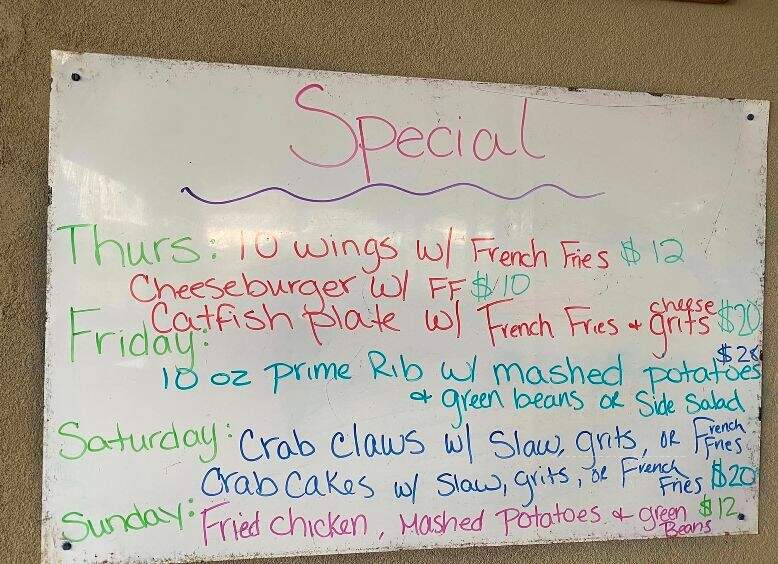 Special
Thurs: 10 wings w/ French Fries $12
Cheeseburger w/ FF $10
Friday: Catfish plate w/ French Fries + cheese grits $20
$28
10 oz prime Rib w/ mashed potatoes
+ green beans or Side Salad
Saturday: Crab Claws w/ Slaw, grits, or French Fries
Crab Cakes w/ Slaw, grits, or French Fries $20
Sunday: Fried chicken, Mashed Potatoes + green Beans $12